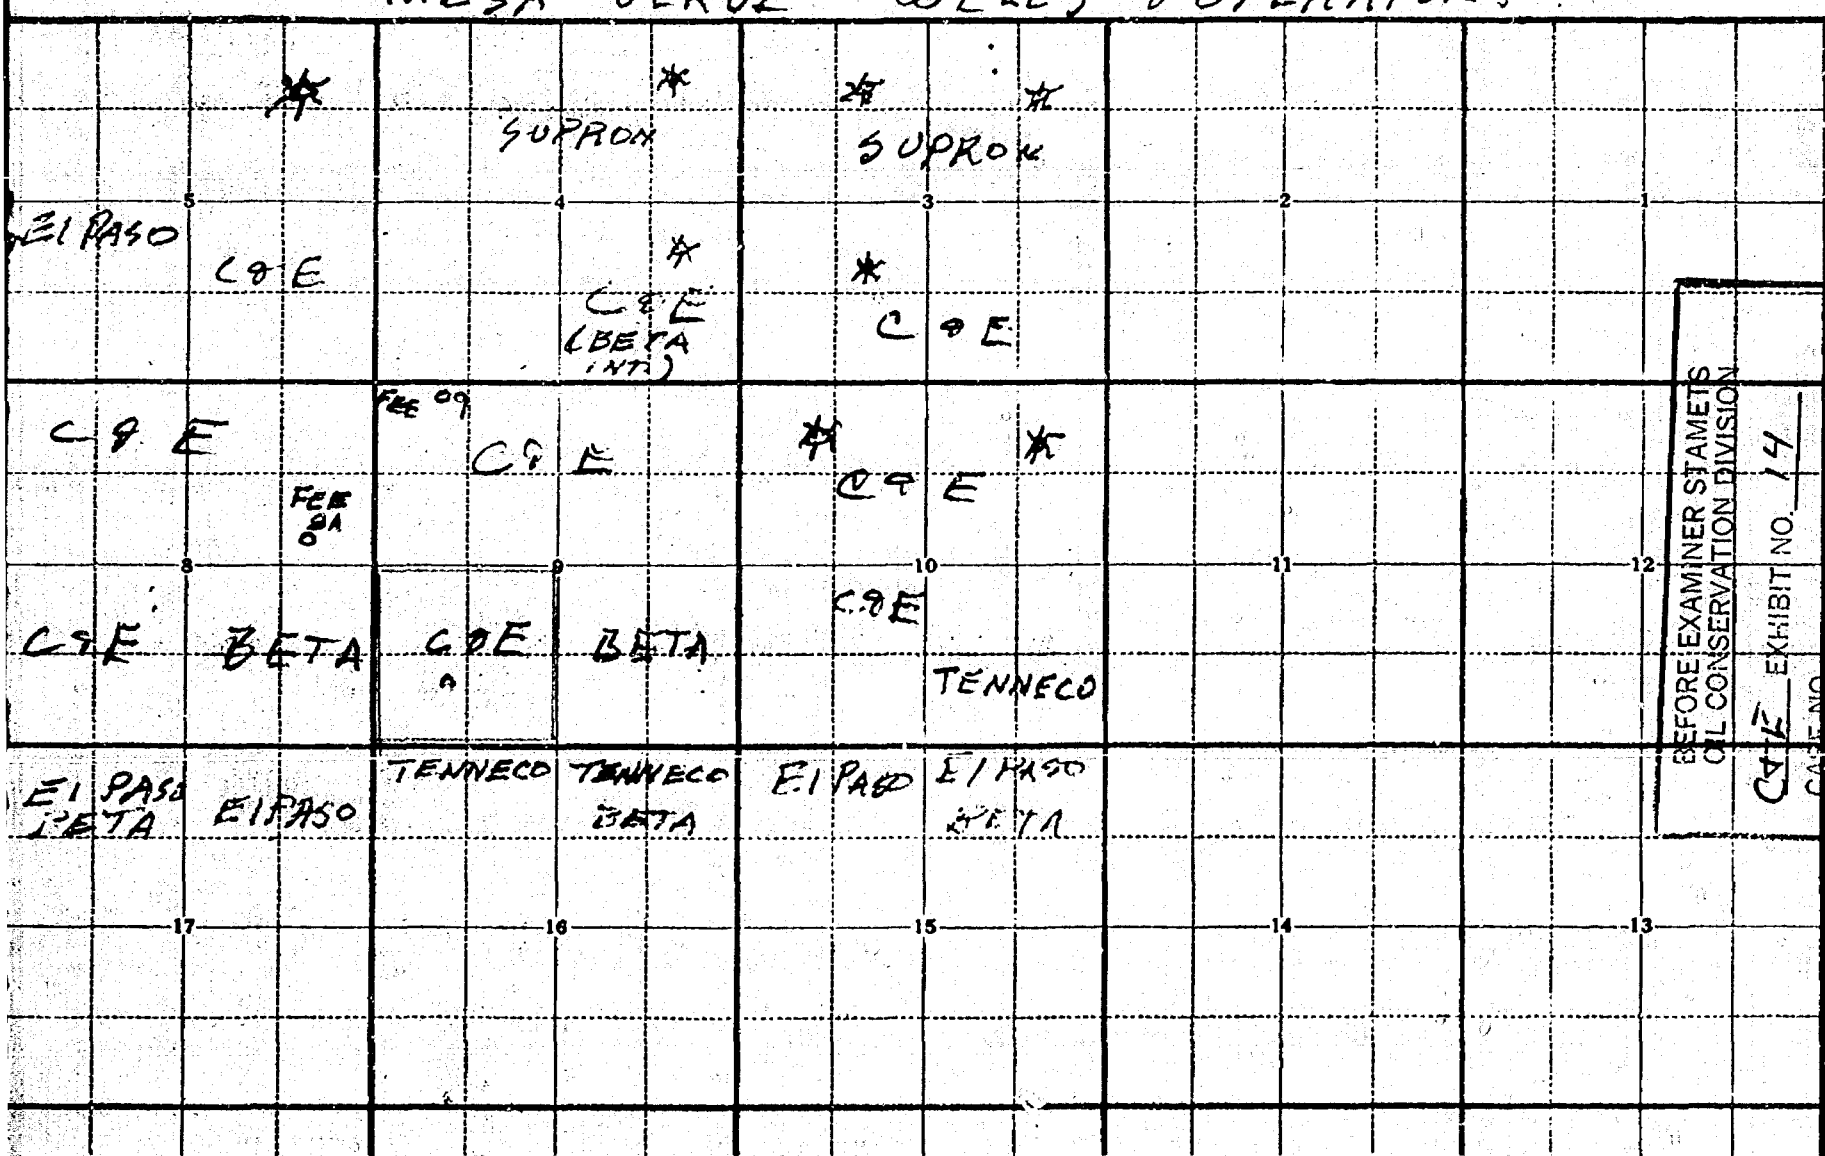 MESA VERDE WELLS & OPERATORS
SUPRON
SUPRON
5
4
3
2
1
El PASO
C & E
C & E
(BETA
INT.)
C & E
C & E
FEE
C & E
C & E
FEE
8A
8
9
10
11
12
C & E
C & E
BETA
C & E
BETA
TENNECO
El PASO
BETA
El PASO
TENNECO
TENNECO
BETA
El PASO
El PASO
BETA
17
16
15
14
13
BEFORE EXAMINER STAMETS
OIL CONSERVATION DIVISION
C&E EXHIBIT NO. 14
CASE NO.